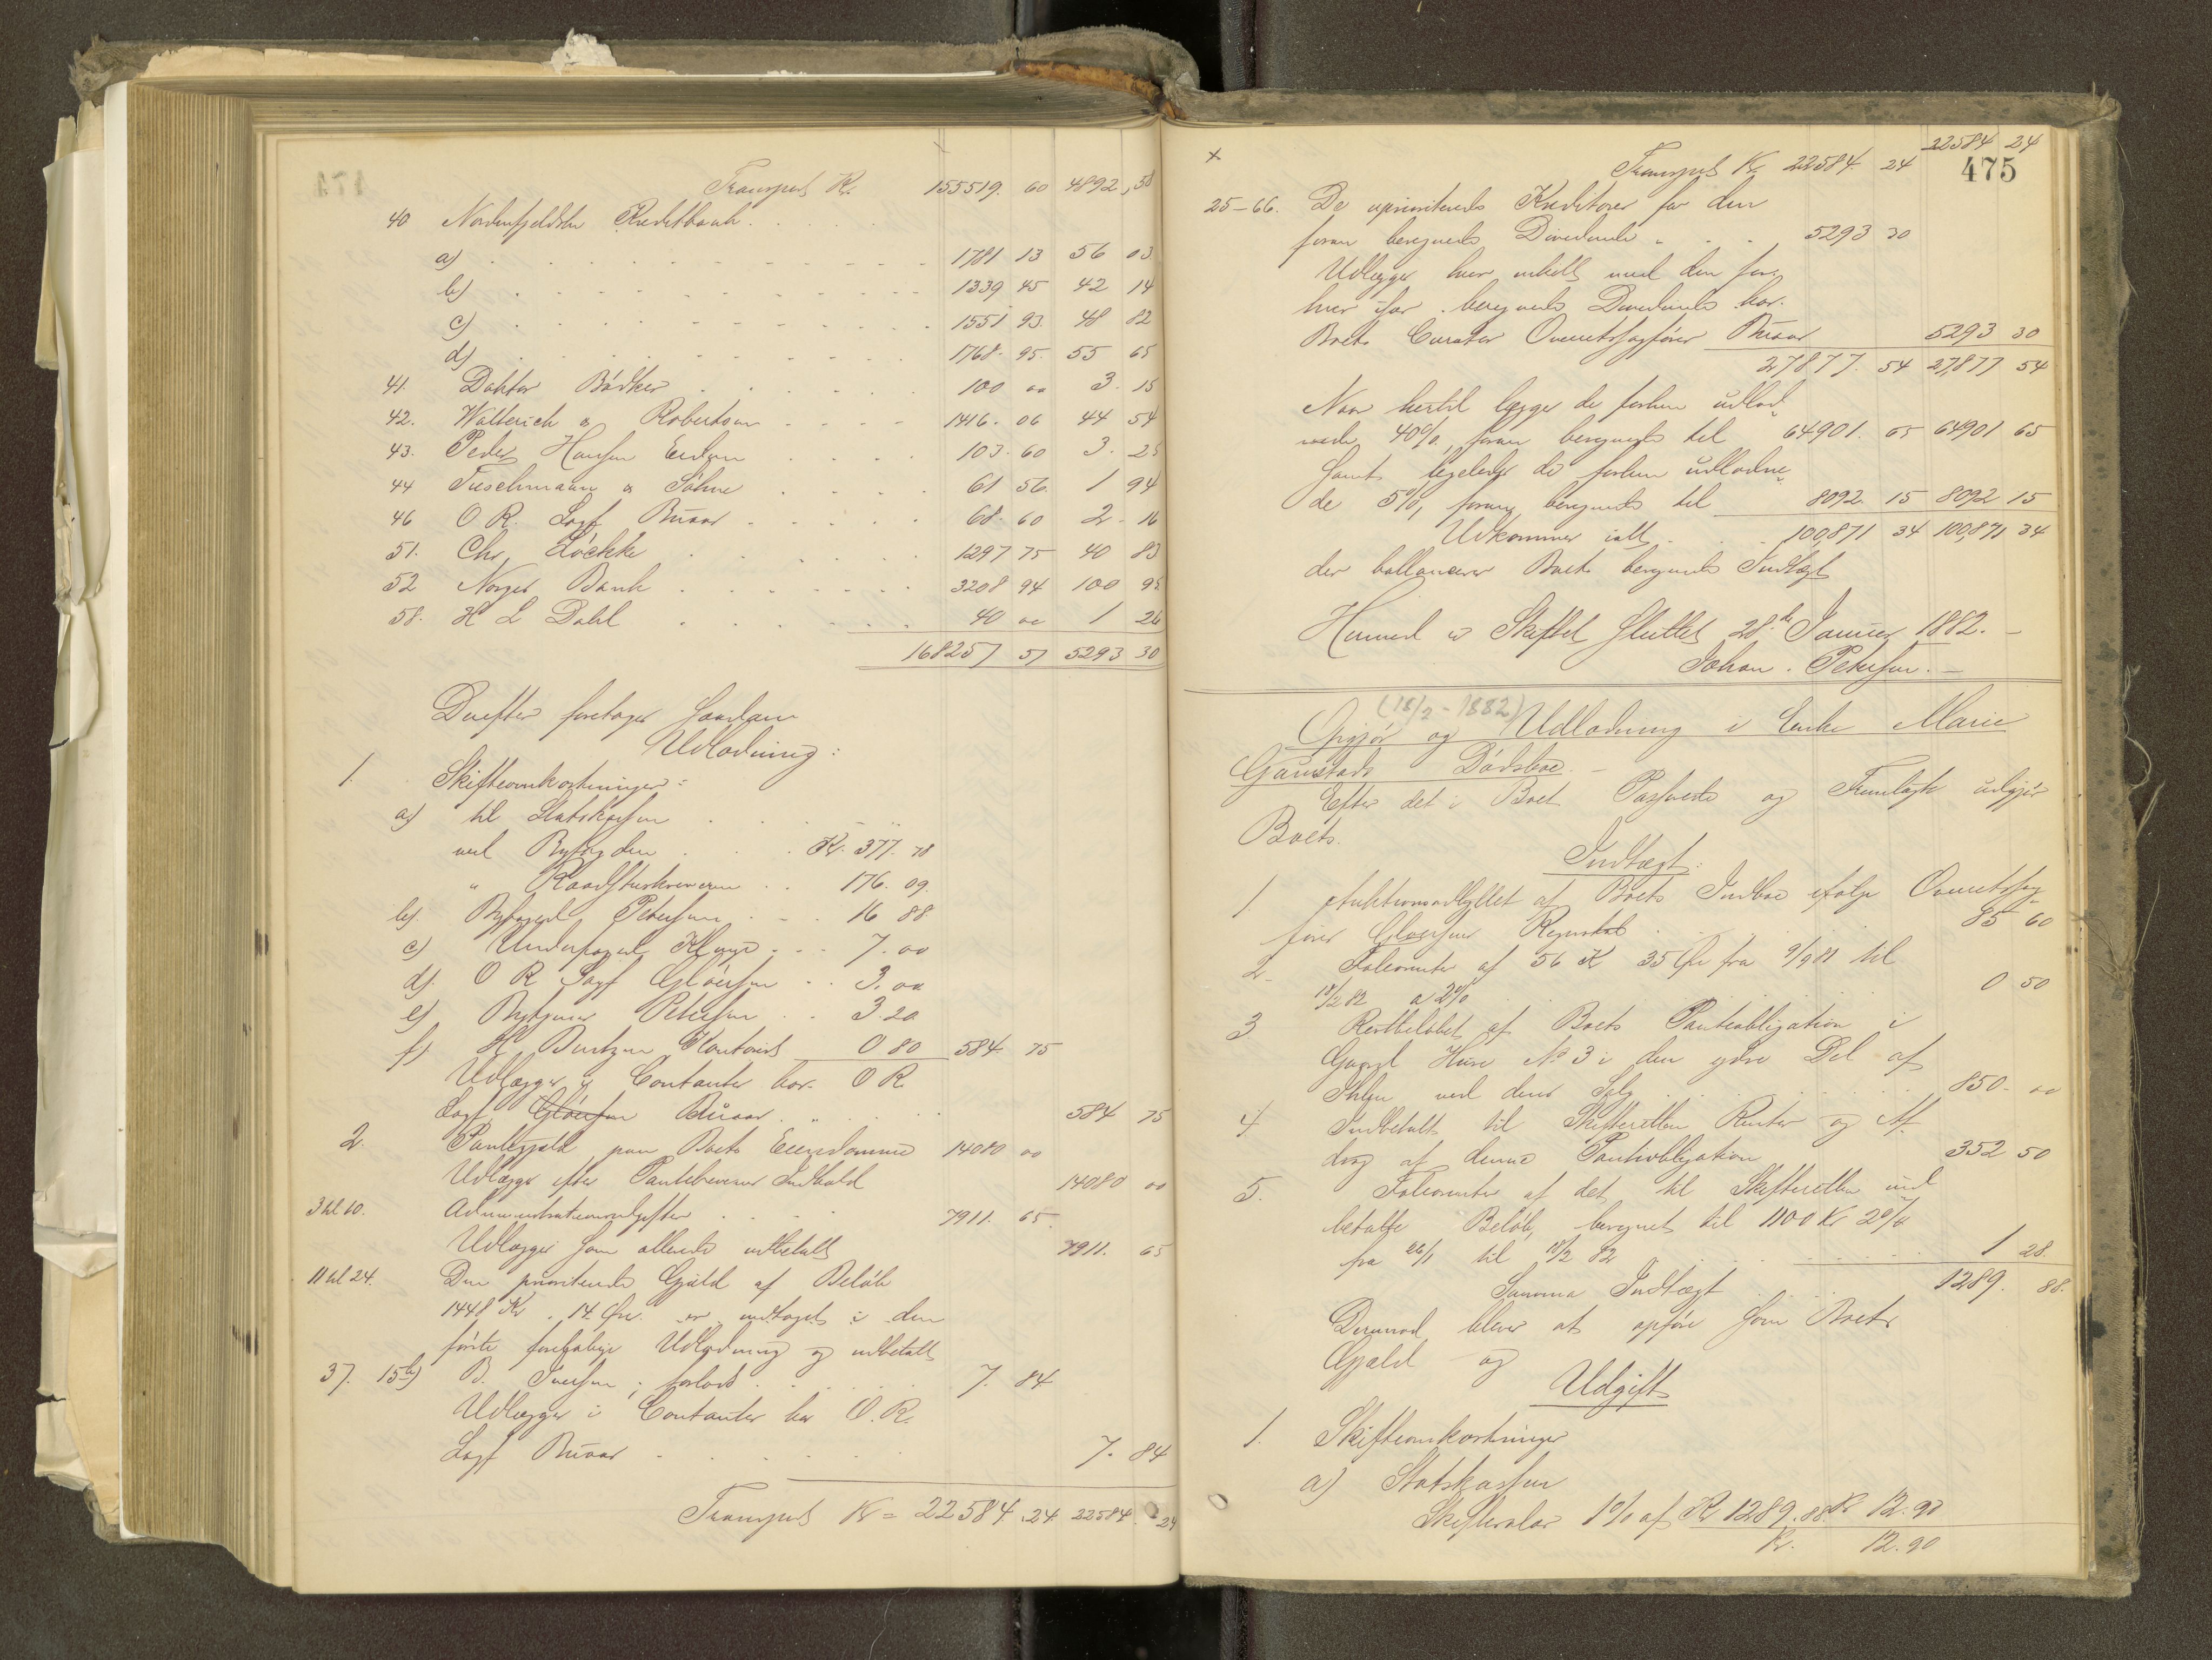 Transport Kr. 155519. 60 4892, 58
40 Nordenfjeldske Kreditbank
a) 1781 13 56 03
b) 1339 45 42 14
c) 1551 93. 48 82
d) 1768. 95. 55 65
41. Doktor Bödker 100 00 3. 15
42. Walterich & Robertson 1416. 06 44 54
43. Peder Hansen 103. 60 3. 25
44 Tieschmann & Söhne 61 56. 1 94
46 O R. Sagf Buaas 68. 60 2. 16
51. Chr, Löchke 1297 75 40 83
52 Norges Bank 3208 94 100 95
58. H L Dahl 40 00 1 26
168257 57 5293 30
Derefter foretages saadan
Udlodning:
1. Skifteomkostninger:
a) til Statskassen
ved Byfogden Kr. 377. 78
" Raadstuskriveren 176. 09.
b). Byfoged Petersen 16 88
c) Underfoged Klynge 7. 00
d). O R Sagf Gløersen 3. 00
e) Petersen 3. 20
f) H Kontorist 0 80 584. 75
Udlægges i Contanter hos O R.
Sagf Gløersen Buaas 584 75
2. Pantegjæld paa Boets Eiendomme 14080 00
Udlægges efter Pantebrevenes Indhold 14080 00
3 til 10. Administrationsudgifter 7911. 65.
Udlægges som allerede udbetalt 7911. 65
11 til 24. Den prioriterede Gjæld af Beløb
1448 Kr. 14 Øre er undtaget i den
første foreløbige Udlodning og udbetalt
37. 15 b) B. Iversen; forlods 7. 84
Udlægges i Contanter hos O. R.
Sagf Buaas 7. 84
Transport Kr = 22584. 24. 22584. 24
22584 24
x Transport Kr. 22584. 24 475
25-66. De uprioriterede Kreditorer for den
foran beregnede Dividende 5293 30
Udlægges hver enkelt med den for
hver især beregnede Dividende hos
Boets Curator Overretssagfører Buaas 5293 30
27877. 54 27,877 54
Naar hertil lægges de forhen udlod¬
nede 40%, foran beregnede til 64901. 65 64901 65
samt ligeledes de forhen udlodne¬
de 5%, foran beregnede til 8092. 15 8092 15
Udkommer ialt 100,871 34 100,871 34
der ballancerer Boets beregnede Indtægt
Hermed er Skiftet sluttet 28.de Januar 1882. -
Johan. Petersen. -
(18/2 - 1882)
Opgjør og Udlodning i Enke Marie
Gaustads Dödsboe. -
Efter det i Boet Passerede og Fremlagte udgjør
Boets
Indtægt:
1 Auktionsudbyttet af Boets Indboe ifølge Overretssag
fører Gløersens Regnskab 85 60
2. Foliorenter af 56 K 35 Øre fra 9/9 81 til
18/2 82 a 2% 0 50
3 Restbeløbet af Boets Panteobligation i
Gaard Huse No 3 i den ydre Del af
Ihlen ved dens Salg 850. 00
4 Indbetalt til Skifteretten Renter og Af¬
drag af denne Panteobligation 352 50
5. Foliorenter af det til Skifteretten ind
betalte Beløb, beregnet til 1100 Kr 2%
fra 26/1 til 18/2 82 1 28.
Summa Indtægt 1289. 88.
Derimod bliver at opføre som Boets
Gjæld og
Udgift
1. Skifteomkostninger
a) Statskassen
Skiftesalær 1% af Kr 1289. 88. Kr 12. 90
Kr. 12. 90